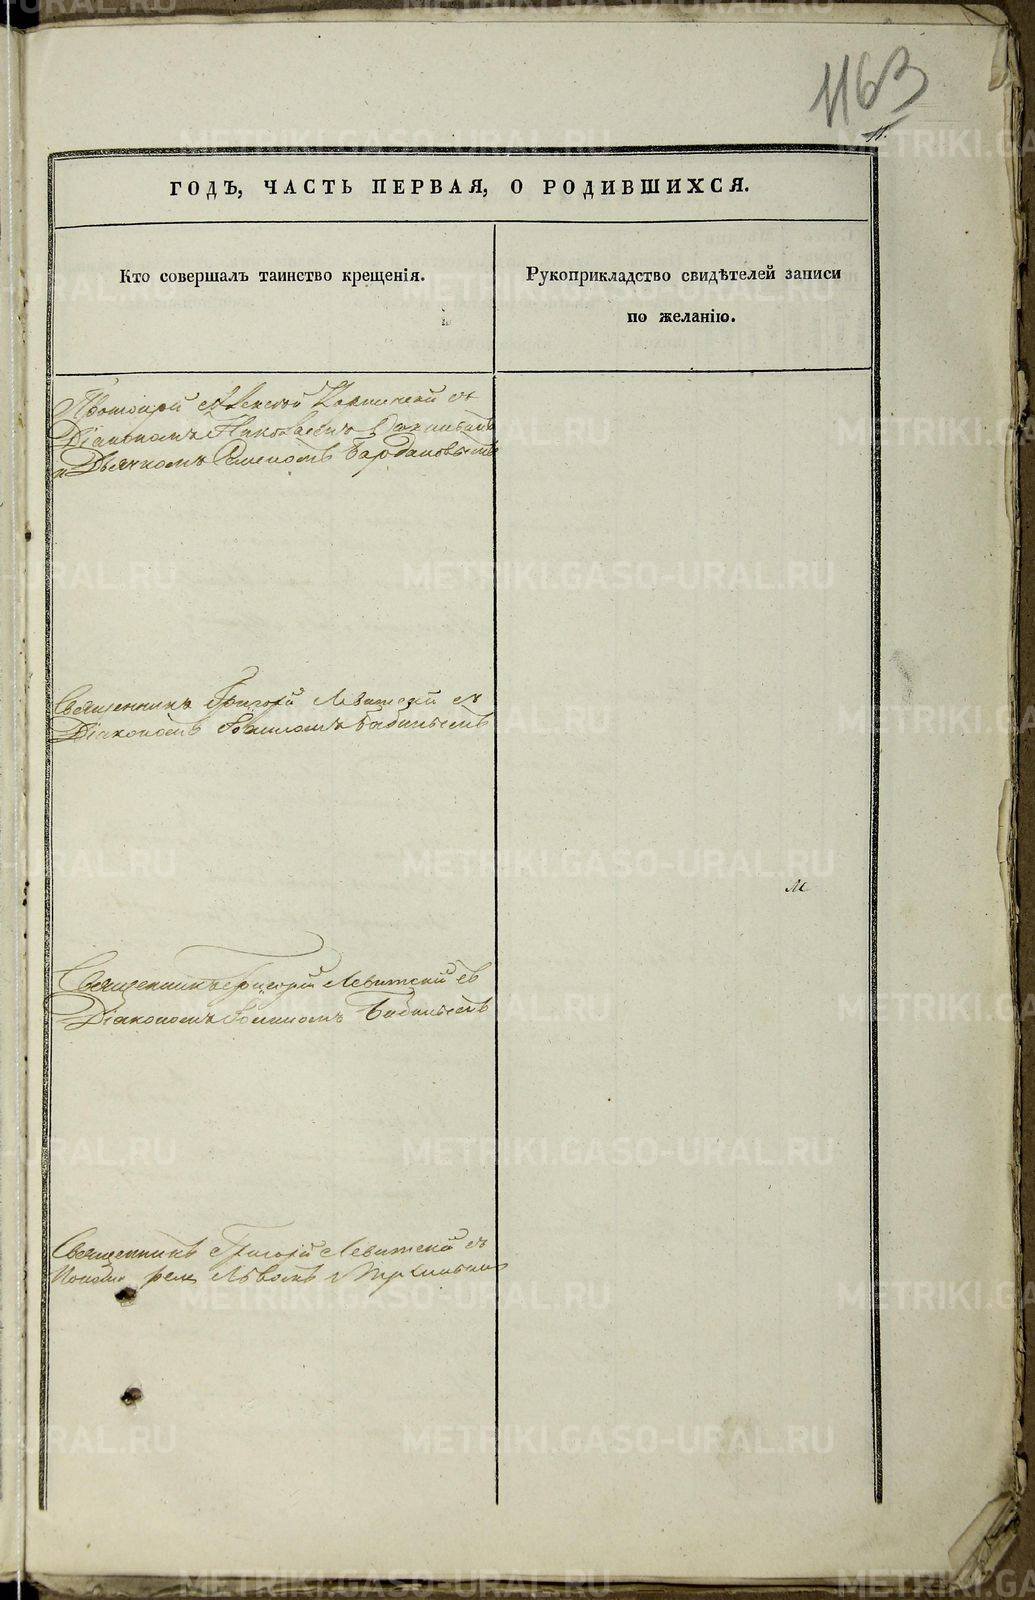 1163
11.
ГОДЪ, ЧАСТЬ ПЕРВАЯ, О РОДИВШИХСЯ.
Кто совершалъ таинство крещенія.
Рукоприкладство свидѣтелей записи
по желанію.
Протоіерей Алексѣй съ
Діакономъ Николаемъ
и Дьячкомъ Семеномъ Богдановымъ
Священникъ Григорій Левитскій съ
Діакономъ Бабинымъ
Священникъ Григорій Левитскій съ
Діакономъ Бабинымъ
Священникъ Григорій Левитскій съ
Львомъ
METRIKI.GASO-URAL.RU